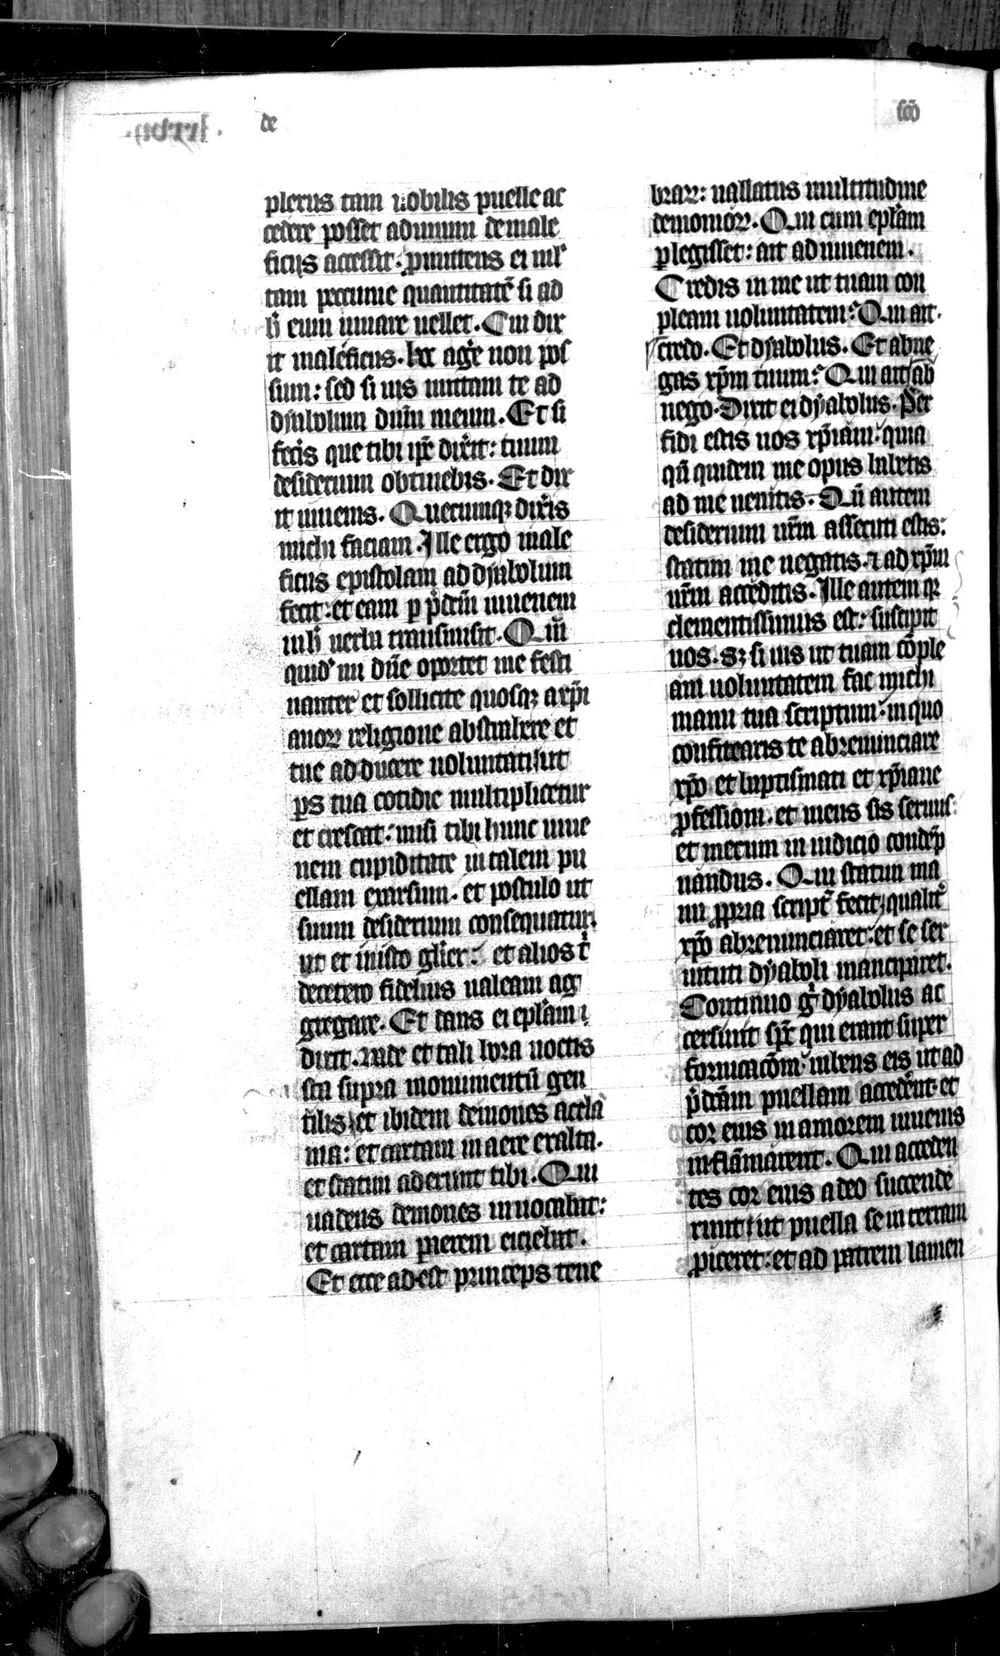 de
sco̅
plexus tam nobilis puelle ac
cedere posset ad unum de male
ficijs accessit. promittens ei mul
tam peccunie quantitate̅ si ad
h̅ eum iuuare uellet. Cui dix
it maleficus. hec age̅ non pos
sum: sed si uis mittam te ad
dyabolum dn̅m meum. Et si
feceris que tibi ip̅e dix̅it: tuum
desiderium obtinebis. Et dix
it iuuenis. Quecumqꝫ dix̅is
michi faciam. Ille ergo male
ficus epistolam ad dyabolum
fecit: et eam p p̅dc̅m iuuenem
in h̅ uerba transmisit. Qm̅
quid' mi dn̅e oportet me festi
nanter et sollicite quosqꝫ a xp̅i
anoꝝ religione abstrahere et
tue adducere uoluntati: ut
ps tua cotidie multiplicetur
et crescat: misi tibi hunc iuue
nem cupiditate in talem pu
ellam exarsum. et postulo ut
suum desiderium consequatur:
ut et in isto glier: et alios t'
decetero fidelius ualeam ag
gregare. Et dans ei epl̅am
dixit. uade et tali hora noctis
sta supra monumentu̅ gen
tilis: et ibidem demones accla
ma: et cartam in aere exalta.
et statim aderunt tibi. Qui
uadens demones inuocabit:
et cartam p aerem eiciebat.
Et ecce adest princeps tene
braꝝ: uallatus multitudine
demonioꝝ. Qui cum epl̅am
plegisset: ait ad iuuenem.
Credis in me ut tuam con
pleam uoluntatem? Qui ait.
credo. Et dyabolus. Et abne
gas xp̅m tuum? Qui ait. ab
nego. Dixit ei dyabolus. Per
fidi estis uos xp̅iani: quia
qn̅ quidem me opus habetis
ad me uenitis. Qn̅ autem
desiderium ur̅m assecuti estis:
statim me negatis. ⁊ ad xp̅m
ur̅m acceditis. Ille autem qꝛ
clementissimus est: suscipit
uos. Sꝫ si uis ut tuam co̅ple
am uoluntatem fac michi
manu tua scriptum: in quo
confitearis te abrenunciare
xp̅o et baptismati et xp̅iane
pfessioni. et meus sis seruus:
et mecum in iudicio conde̅p
nandus. Qui statim ma
nu ppria script' fecit: qualit'
xp̅o abrenunciaret: et se ser
uituti dyaboli manciparet.
Continuo g' dyabolus ac
cersiuit sp̅c qui erant super
fornicac̅om: iubens eis ut ad
p̅dc̅am puellam accederent. et
cor eius in amorem iuuenis
infla̅marent. Qui acceden
tes cor eius adeo succende
runt: ut puella se in terram
piceret: et ad patrem lamen